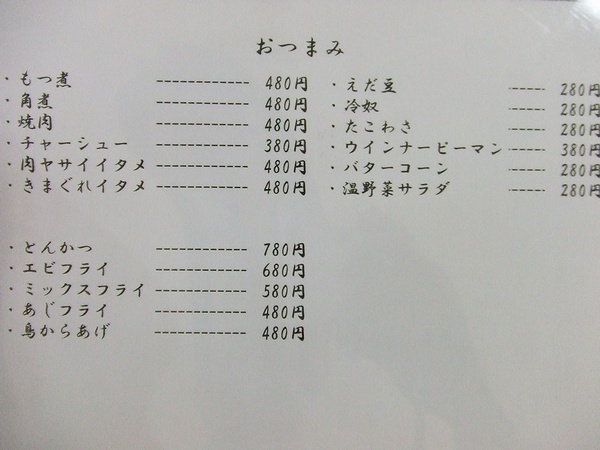 おつまみ
・もつ煮 ------------- 480円
・角煮 ------------- 480円
・焼肉 ------------- 480円
・チャーシュー ------------- 380円
・肉ヤサイイタメ ------------- 480円
・きまぐれイタメ ------------- 480円
・えだ豆 ------ 280円
・冷奴 ------ 280円
・たこわさ ------ 280円
・ウインナーピーマン ------ 380円
・バターコーン ------ 280円
・温野菜サラダ ------ 280円
・とんかつ ------------- 780円
・エビフライ ------------- 680円
・ミックスフライ ------------- 580円
・あじフライ ------------- 480円
・鳥からあげ ------------- 480円